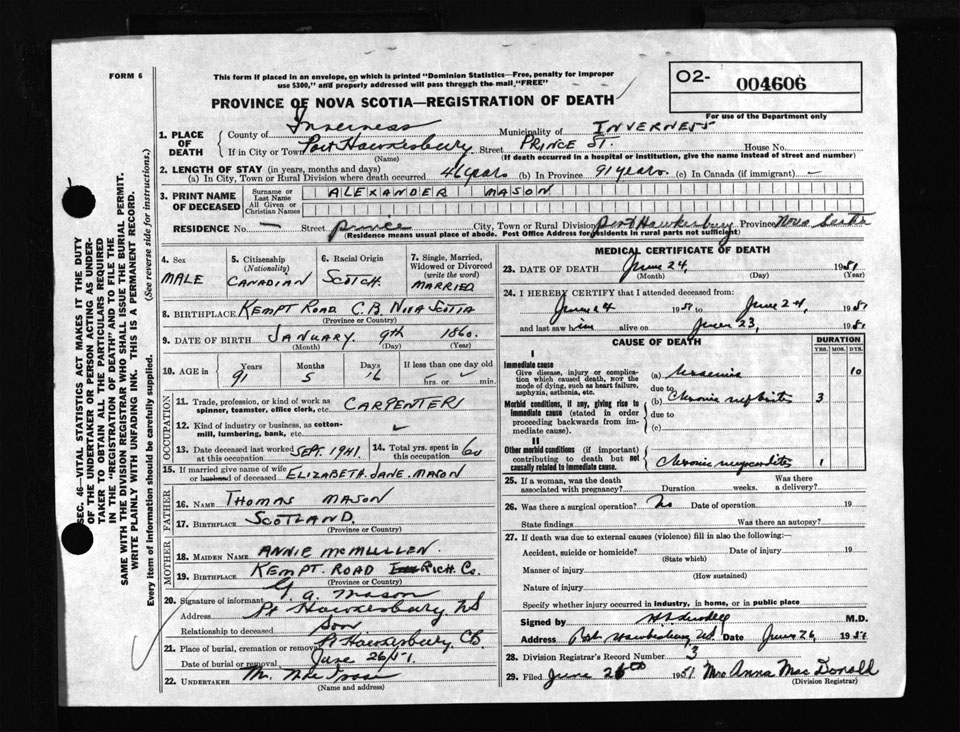 FORM 6
This form if placed in an envelope, on which is printed "Dominion Statistics—Free, penalty for improper
use $300," and properly addressed will pass through the mail, "FREE"
O2- 004606
For use of the Department only
PROVINCE OF NOVA SCOTIA—REGISTRATION OF DEATH
1. PLACE OF DEATH
County of Inverness Municipality of INVERNESS
If in City or Town Port Hawkesbury Street PRINCE ST. House No.
(Name) (If death occurred in a hospital or institution, give the name instead of street and number)
2. LENGTH OF STAY (in years, months and days)
(a) In City, Town or Rural Division where death occurred 46 years (b) In Province 91 years. (c) In Canada (if immigrant) —
3. PRINT NAME OF DECEASED
Surname or Last Name
All Given or Christian Names
ALEXANDER MASON
RESIDENCE No. — Street Prince City, Town or Rural Division Port Hawkesbury Province Nova Scotia
(Residence means usual place of abode. Post Office Address for residents in rural parts not sufficient)
4. Sex
MALE
5. Citizenship
(Nationality)
CANADIAN
6. Racial Origin
SCOTCH
7. Single, Married, Widowed or Divorced
(write the word)
MARRIED
8. BIRTHPLACE KEMPT ROAD C.B. NOVA SCOTIA
(Province or Country)
9. DATE OF BIRTH JANUARY 9th 1860.
(Month) (Day) (Year)
10. AGE in
Years Months Days If less than one day old
91 5 16 hrs. or min.
OCCUPATION
11. Trade, profession, or kind of work as
spinner, teamster, office clerk, etc. CARPENTER
12. Kind of industry or business, as cotton-
mill, lumbering, bank, etc.
13. Date deceased last worked at this occupation SEPT. 1941. 14. Total yrs. spent in this occupation 60
15. If married give name of wife
or husband of deceased ELIZABETH JANE MASON
FATHER
16. NAME THOMAS MASON
17. BIRTHPLACE SCOTLAND.
(Province or Country)
MOTHER
18. MAIDEN NAME ANNIE McMULLEN.
19. BIRTHPLACE KEMPT ROAD RICH. Co.
(Province or Country)
20. Signature of informant G. A. Mason
Address Pt Hawkesbury NS
Relationship to deceased Son
21. Place of burial, cremation or removal Pt Hawkesbury CB.
Date of burial or removal June 26/51.
22. UNDERTAKER
(Name and address)
MEDICAL CERTIFICATE OF DEATH
23. DATE OF DEATH June 24, 1951
(Month) (Day)
24. I HEREBY CERTIFY that I attended deceased from:
June 4 1951 to June 24, 1951
and last saw him alive on June 23, 1951
CAUSE OF DEATH
DURATION
YRS. MOS. DYS.
I
Immediate cause
Give disease, injury or complica-
tion which caused death, NOT the
mode of dying, such as heart failure,
asphyxia, asthenia, etc.
(a) Uraemia 10
due to
Morbid conditions, if any, giving rise to
immediate cause (stated in order
proceeding backwards from im-
mediate cause).
(b) Chronic nephritis 3
due to
(c)
II
Other morbid conditions (if important)
contributing to death but not
causally related to immediate cause.
Chronic myocarditis 1
25. If a woman, was the death
associated with pregnancy? Duration weeks. Was there a delivery?
26. Was there a surgical operation? No Date of operation 19
State findings Was there an autopsy?
27. If death was due to external causes (violence) fill in also the following:—
Accident, suicide or homicide? Date of injury 19
(State which)
Manner of injury
(How sustained)
Nature of injury
Specify whether injury occurred in industry, in home, or in public place
Signed by M.D.
Address Port Hawkesbury NS Date June 26 1951
28. Division Registrar's Record Number 3
29. Filed June 26th 1951 Mrs Anna MacDonald
(Division Registrar)
SEC. 46—VITAL STATISTICS ACT MAKES IT THE DUTY
OF THE UNDERTAKER OR PERSON ACTING AS UNDER-
TAKER TO OBTAIN ALL THE PARTICULARS REQUIRED
IN THE "REGISTRATION OF DEATH" AND TO FILE THE
SAME WITH THE DIVISION REGISTRAR WHO SHALL ISSUE THE BURIAL PERMIT.
WRITE PLAINLY WITH UNFADING INK. THIS IS A PERMANENT RECORD.
Every item of information should be carefully supplied. (See reverse side for instructions.)